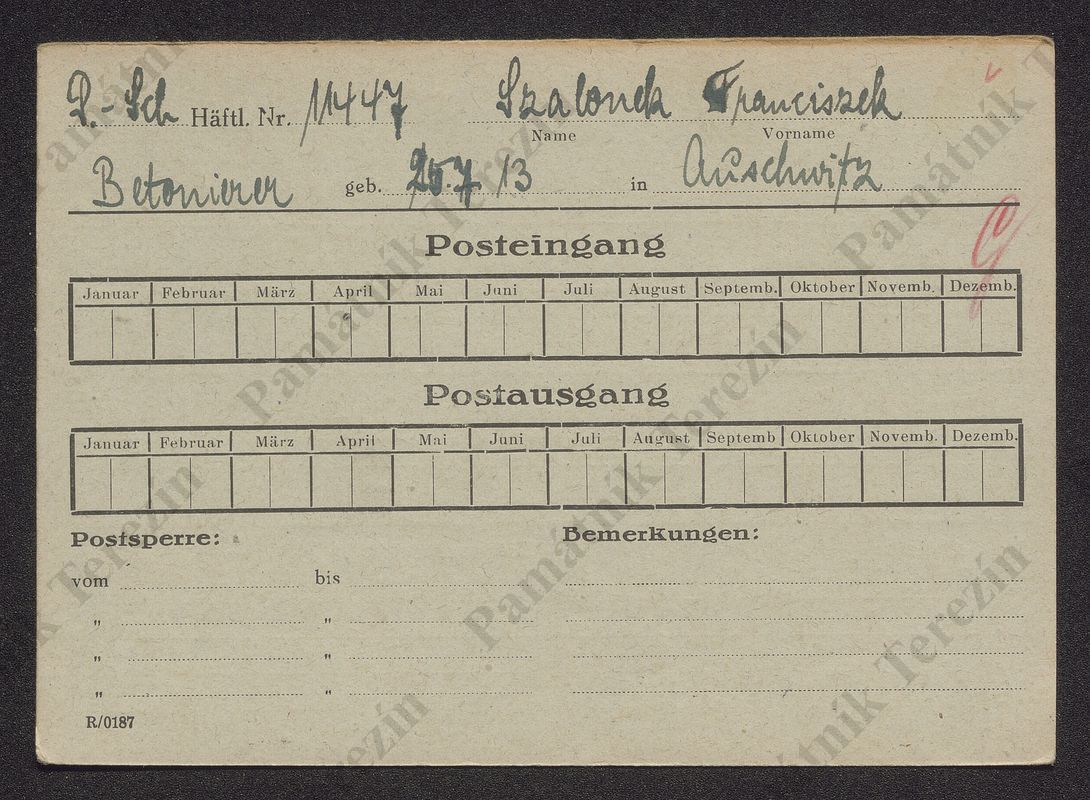 P.- Sch Häftl. Nr. 11447 Szalonek Franciszek
Name Vorname
Betonierer geb. 25.7.13 in Auschwitz
Posteingang
Januar Februar März April Mai Juni Juli August Septemb. Oktober Novemb. Dezemb.
Postausgang
Januar Februar März April Mai Juni Juli August Septemb Oktober Novemb. Dezemb.
Postsperre: Bemerkungen:
vom bis
" "
" "
" "
R/0187
Památník Terezín